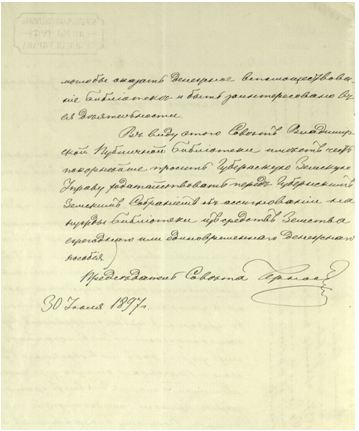 могъ бы оказать денежное вспомоществова-
ніе библіотекѣ и быть заинтересовано въ
ея дѣятельности.
Въ виду этого Совѣтъ Владимір-
ской Публичной библіотеки имѣетъ честь
покорнѣйше просить Губернскую Земскую
Управу ходатайствовать передъ Губернскимъ
Земскимъ Собраніемъ объ ассигнованіи на
нужды библіотеки изъ средствъ Земства
ежегоднаго или единовременнаго денежнаго
пособія.
Предсѣдатель Совѣта
30 Іюля 1897 г.